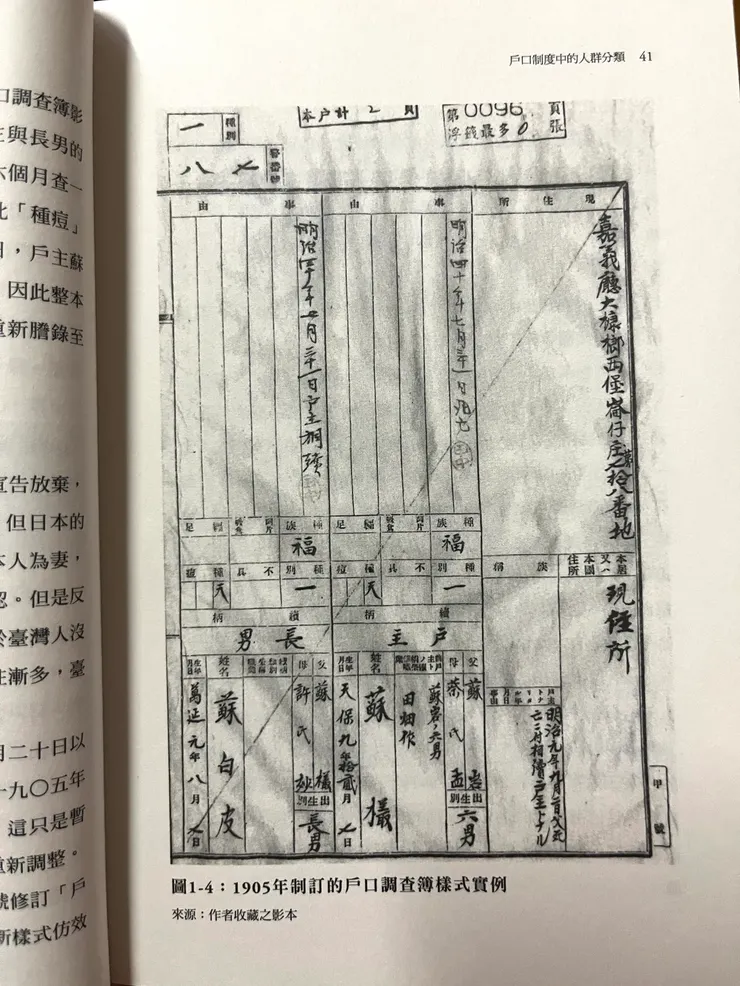 戶口制度中的人群分類 41
口調查簿影
與長男的
六個月查一
「種痘」
，戶主蘇
因此整本
重新謄錄至
宣告放棄，
但日本的
本人為妻，
認。但是反
於臺灣人沒
往漸多，臺
月二十日以
一九〇五年
這只是暫
重新調整。
號修訂「戶
新樣式仿效
本戶計 頁
第 0096 頁
浮籤最多 0 張
種別
一
警番號
八
現住所
嘉義廳大槺榔西堡崙仔庄
拾八番地
本居又ハ本國住所
現住所
族稱
事由
明治四十年七月三十一日死亡
種族
福
阿片吸食
纏足
種別
一
不具
種痘
天
續柄
戶主
父
蘇
母
蔡氏
出生別
六男
田畑作
姓名
蘇
生年月日
天保九年拾貳月
事由
日戶主相續
種族
福
阿片吸食
纏足
種別
一
不具
種痘
天
續柄
長男
父
蘇
母
許氏
出生別
長男
姓名
蘇白皮
生年月日
萬延元年八月
甲號
圖1-4：1905年制訂的戶口調查簿樣式實例
來源：作者收藏之影本